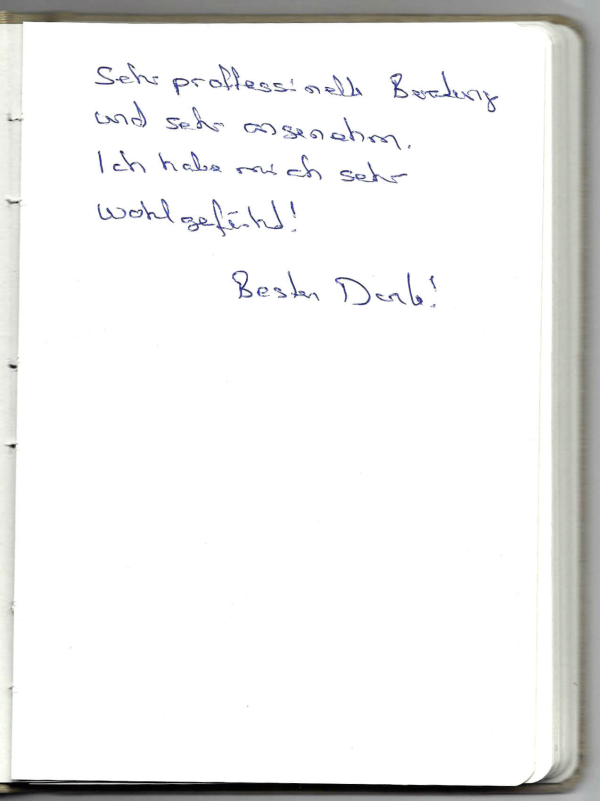 Sehr proffessionelle Beratung
und sehr angenehm.
Ich habe mich sehr
wohl gefühlt!
Besten Dank!